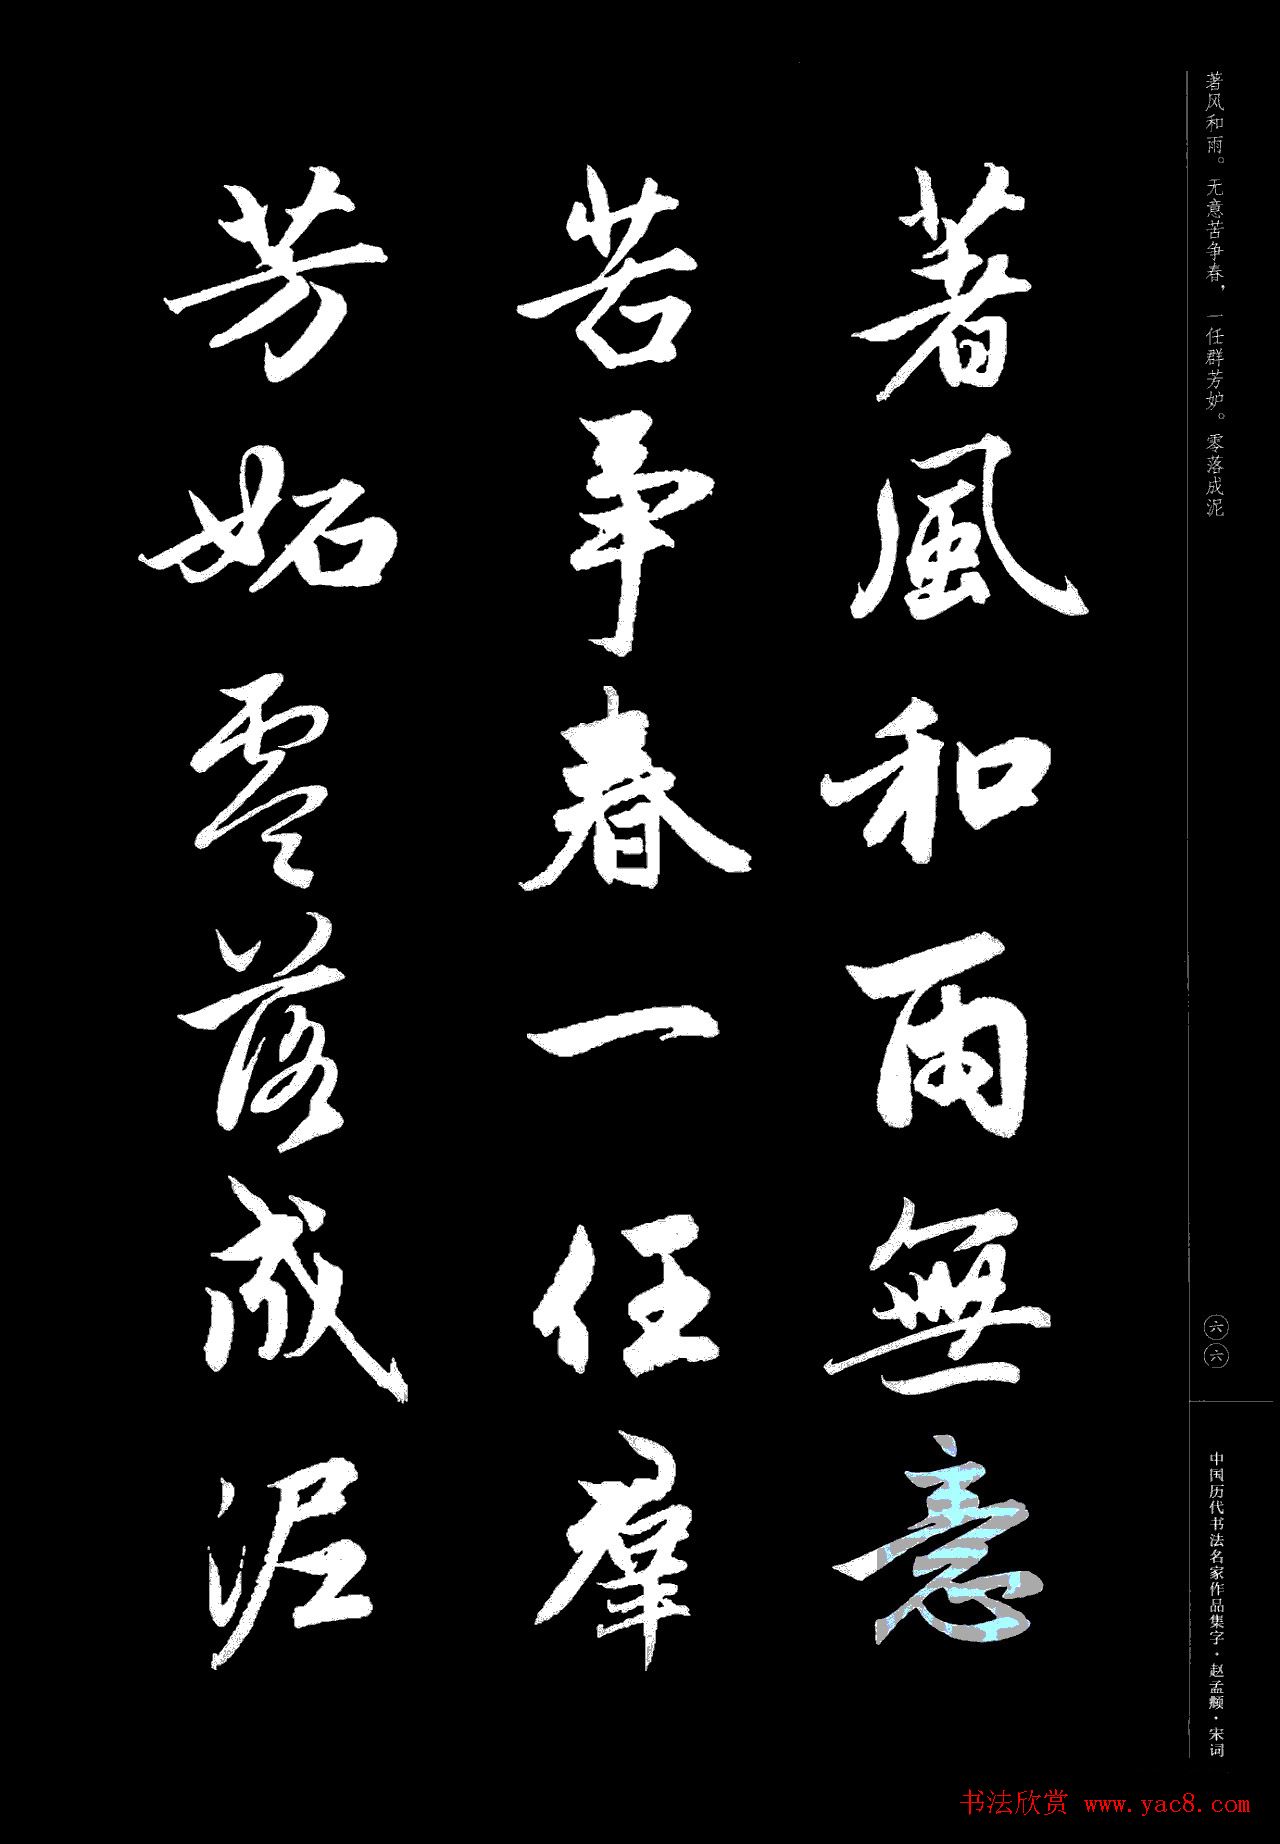 著风和雨。无意苦争春，一任群芳妒。零落成泥
著風和雨無意
苦争春一任羣
芳妬零落成泥
六六
中国历代书法名家作品集字·赵孟頫·宋词
书法欣赏 www.yac8.com